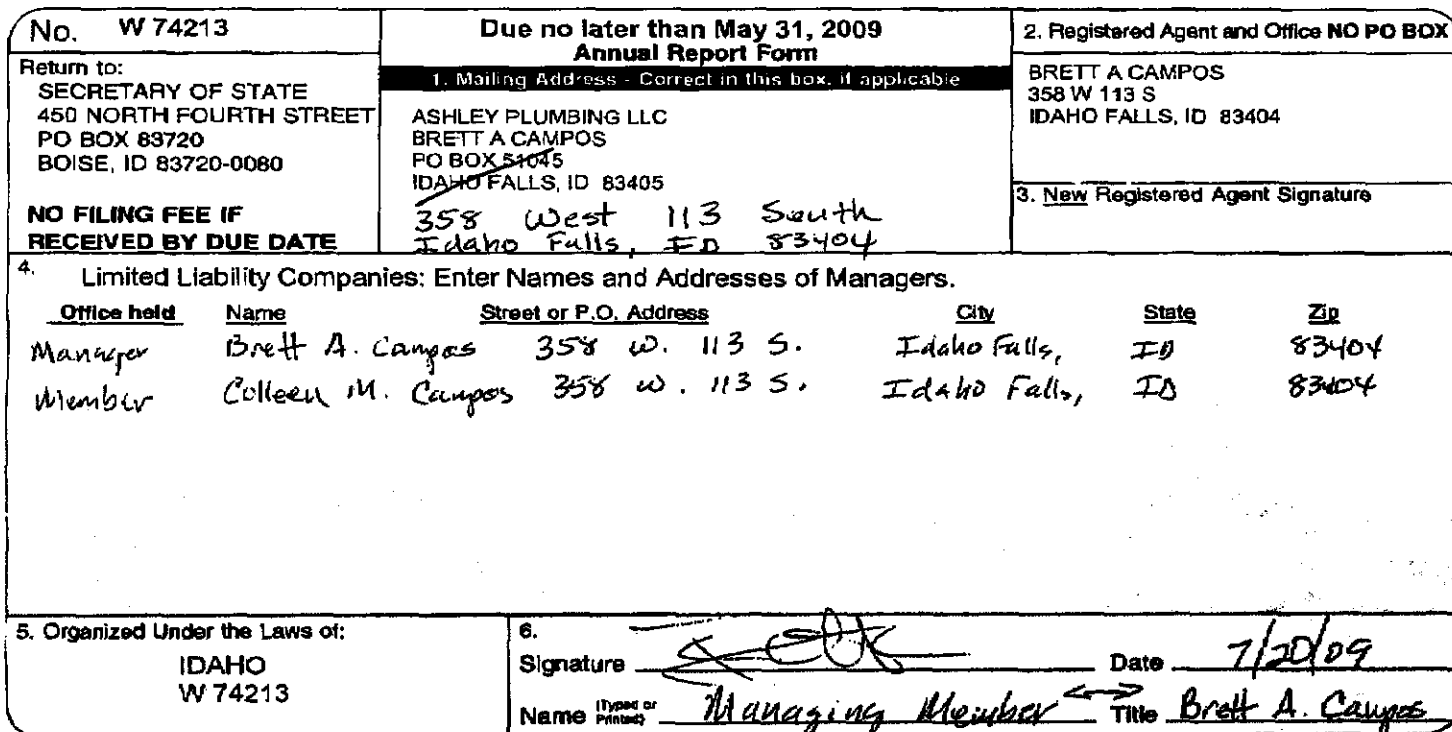 No. W 74213
Return to:
SECRETARY OF STATE
450 NORTH FOURTH STREET
PO BOX 83720
BOISE, ID 83720-0080
NO FILING FEE IF
RECEIVED BY DUE DATE
Due no later than May 31, 2009
Annual Report Form
1. Mailing Address - Correct in this box, if applicable
ASHLEY PLUMBING LLC
BRETT A CAMPOS
PO BOX 51045
IDAHO FALLS, ID 83405
358 West 113 South
Idaho Falls, ID 83404
2. Registered Agent and Office NO PO BOX
BRETT A CAMPOS
358 W 113 S
IDAHO FALLS, ID 83404
3. New Registered Agent Signature
4. Limited Liability Companies: Enter Names and Addresses of Managers.
Office held Name Street or P.O. Address City State Zip
Manager Brett A. Campos 358 W. 113 S. Idaho Falls, ID 83404
Member Colleen M. Campos 358 W. 113 S. Idaho Falls, ID 83404
5. Organized Under the Laws of:
IDAHO
W 74213
6.
Signature Date 7/20/09
Name (Typed or Printed) Managing Member ↔ Title Brett A. Campos